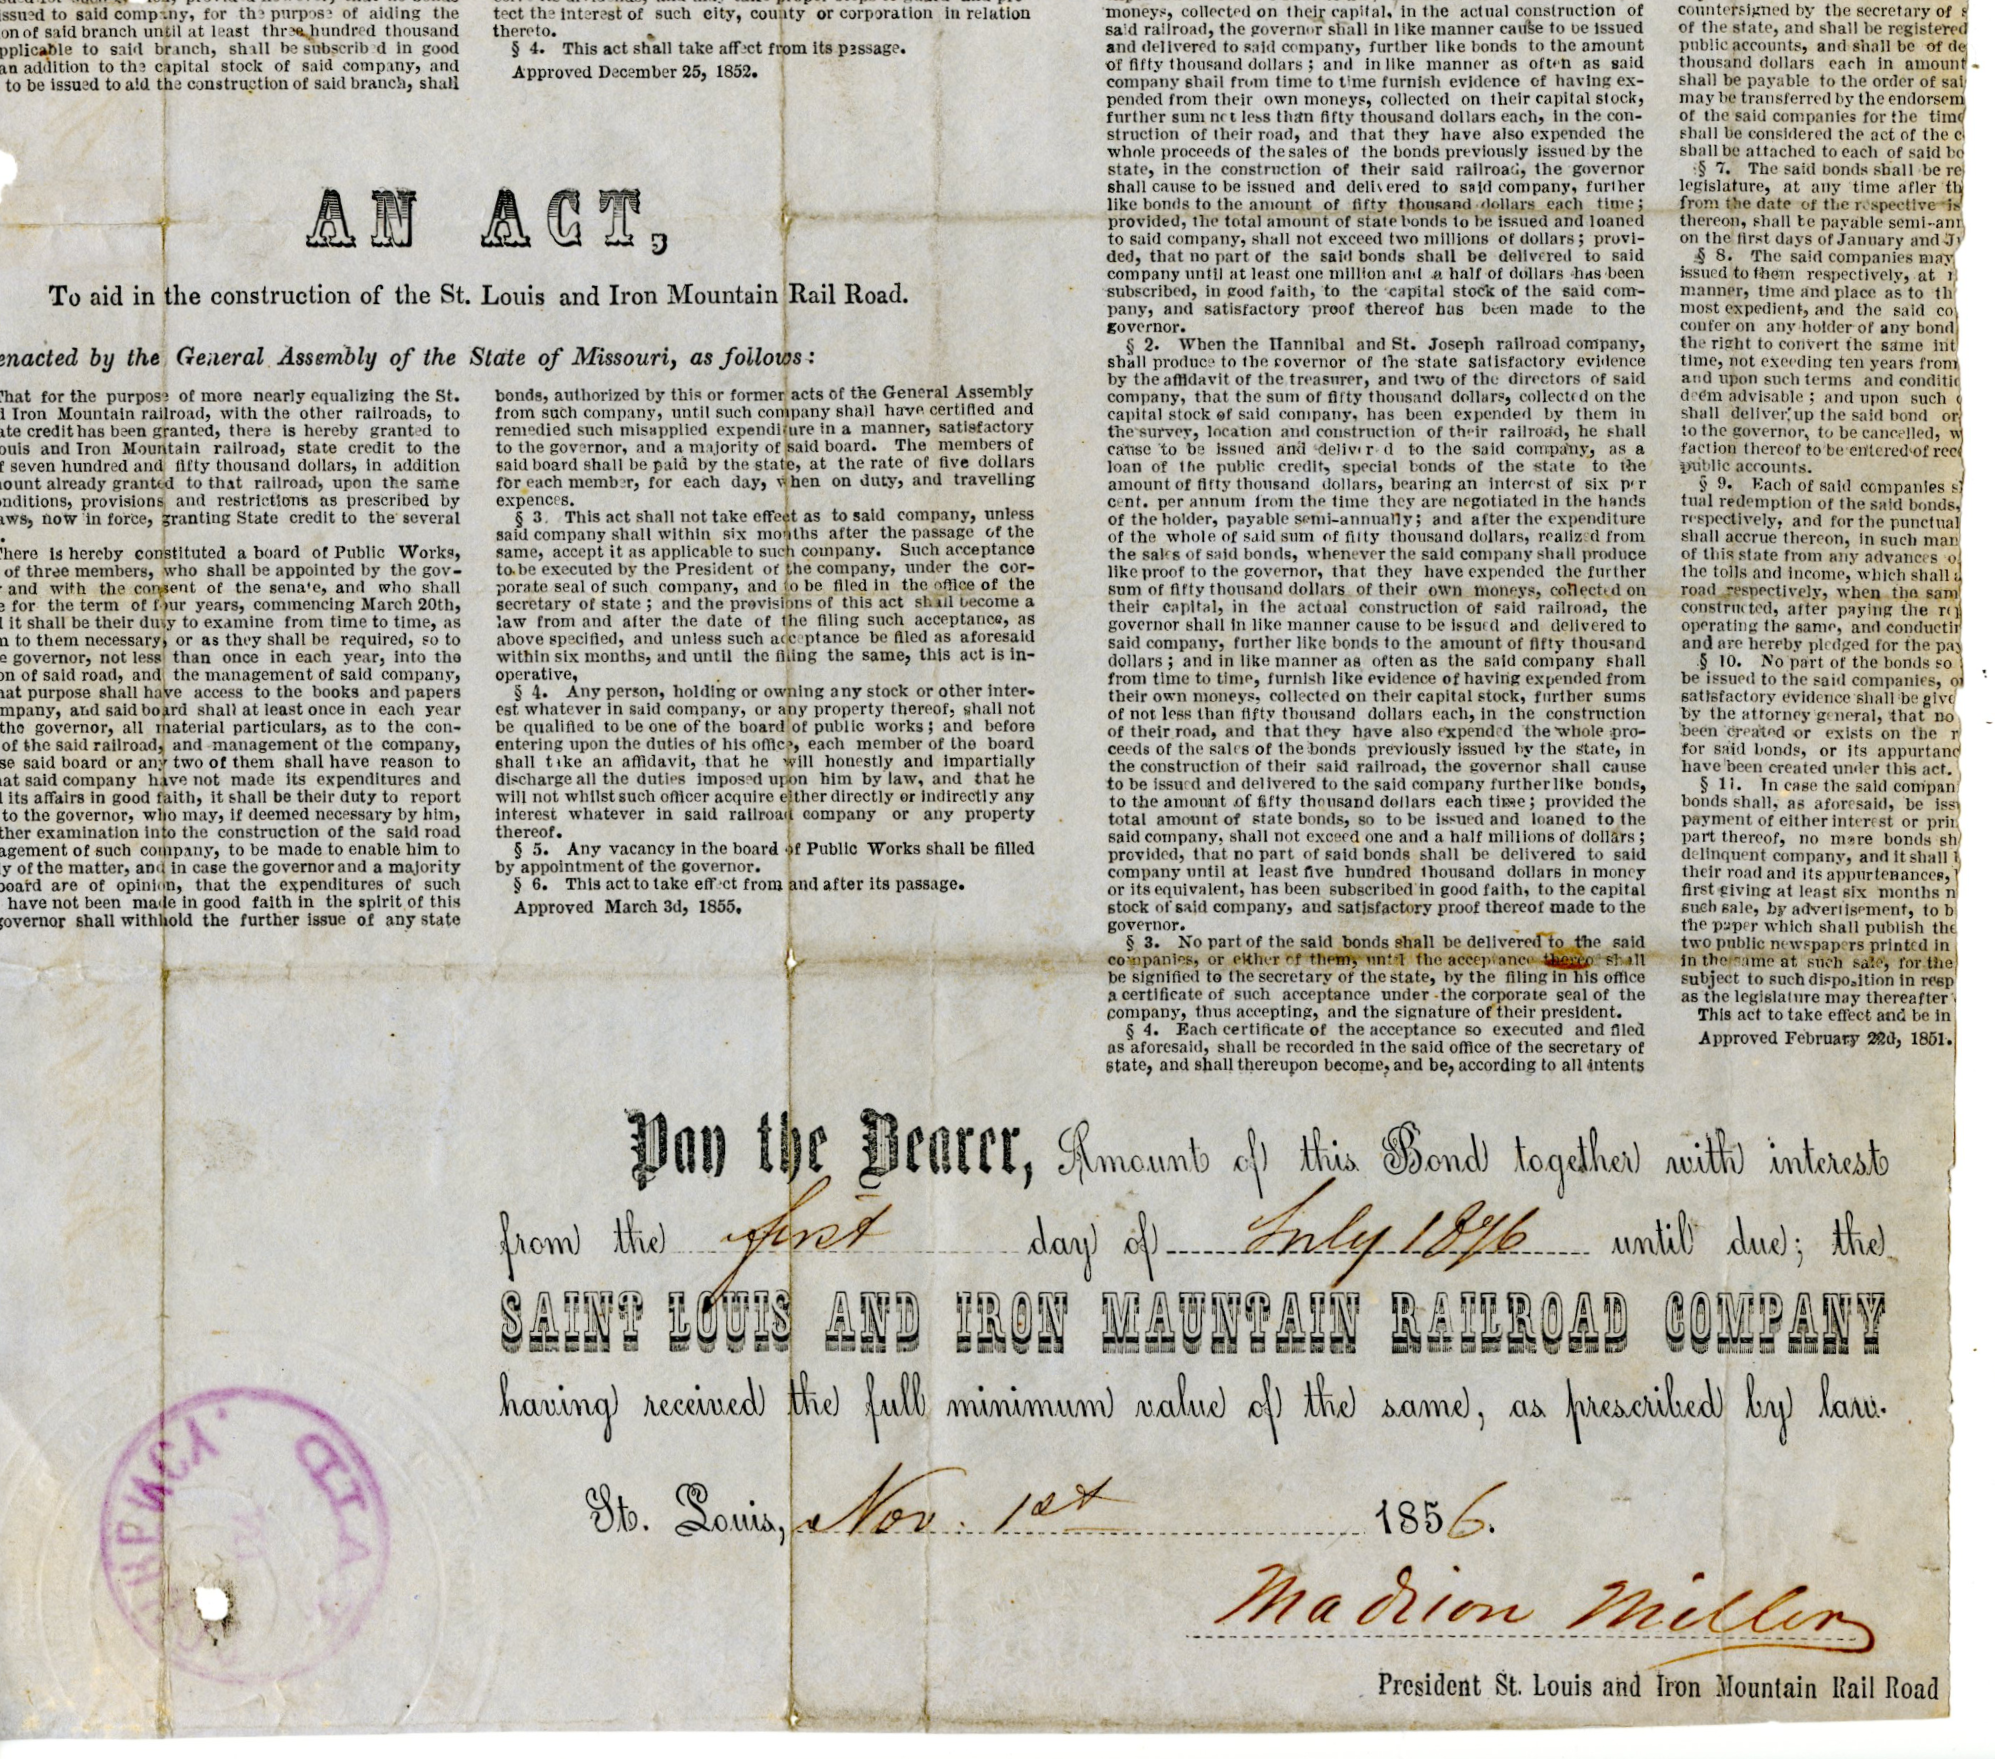 issued to said company, for the purpose of aiding the
on of said branch until at least three hundred thousand
pplicable to said branch, shall be subscrib d in good
an addition to the capital stock of said company, and
to be issued to aid the construction of said branch, shall
tect the interest of such city, county or corporation in relation
thereto.
§ 4. This act shall take affect from its passage.
Approved December 25, 1852.
AN ACT,
To aid in the construction of the St. Louis and Iron Mountain Rail Road.
enacted by the General Assembly of the State of Missouri, as follows:
That for the purpose of more nearly equalizing the St.
d Iron Mountain railroad, with the other railroads, to
ate credit has been granted, there is hereby granted to
ouis and Iron Mountain railroad, state credit to the
f seven hundred and fifty thousand dollars, in addition
mount already granted to that railroad, upon the same
onditions, provisions and restrictions as prescribed by
aws, now in force, granting State credit to the several
There is hereby constituted a board of Public Works,
of three members, who shall be appointed by the gov-
and with the consent of the senate, and who shall
e for the term of four years, commencing March 20th,
d it shall be their duty to examine from time to time, as
n to them necessary, or as they shall be required, so to
e governor, not less than once in each year, into the
on of said road, and the management of said company,
hat purpose shall have access to the books and papers
mpany, and said board shall at least once in each year
the governor, all material particulars, as to the con-
of the said railroad, and management of the company,
se said board or any two of them shall have reason to
hat said company have not made its expenditures and
d its affairs in good faith, it shall be their duty to report
to the governor, who may, if deemed necessary by him,
ther examination into the construction of the said road
agement of such company, to be made to enable him to
y of the matter, and in case the governor and a majority
board are of opinion, that the expenditures of such
have not been made in good faith in the spirit of this
governor shall withhold the further issue of any state
bonds, authorized by this or former acts of the General Assembly
from such company, until such company shall have certified and
remedied such misapplied expenditure in a manner, satisfactory
to the governor, and a majority of said board. The members of
said board shall be paid by the state, at the rate of five dollars
for each member, for each day, when on duty, and travelling
expences.
§ 3. This act shall not take effect as to said company, unless
said company shall within six months after the passage of the
same, accept it as applicable to such company. Such acceptance
to be executed by the President of the company, under the cor-
porate seal of such company, and to be filed in the office of the
secretary of state; and the provisions of this act shall become a
law from and after the date of the filing such acceptance, as
above specified, and unless such acceptance be filed as aforesaid
within six months, and until the filing the same, this act is in-
operative,
§ 4. Any person, holding or owning any stock or other inter-
est whatever in said company, or any property thereof, shall not
be qualified to be one of the board of public works; and before
entering upon the duties of his office, each member of the board
shall take an affidavit, that he will honestly and impartially
discharge all the duties imposed upon him by law, and that he
will not whilst such officer acquire either directly or indirectly any
interest whatever in said railroad company or any property
thereof.
§ 5. Any vacancy in the board of Public Works shall be filled
by appointment of the governor.
§ 6. This act to take effect from and after its passage.
Approved March 3d, 1855.
moneys, collected on their capital, in the actual construction of
said railroad, the governor shall in like manner cause to be issued
and delivered to said company, further like bonds to the amount
of fifty thousand dollars; and in like manner as often as said
company shall from time to time furnish evidence of having ex-
pended from their own moneys, collected on their capital stock,
further sum not less than fifty thousand dollars each, in the con-
struction of their road, and that they have also expended the
whole proceeds of the sales of the bonds previously issued by the
state, in the construction of their said railroad, the governor
shall cause to be issued and delivered to said company, further
like bonds to the amount of fifty thousand dollars each time;
provided, the total amount of state bonds to be issued and loaned
to said company, shall not exceed two millions of dollars; provi-
ded, that no part of the said bonds shall be delivered to said
company until at least one million and a half of dollars has been
subscribed, in good faith, to the capital stock of the said com-
pany, and satisfactory proof thereof has been made to the
governor.
§ 2. When the Hannibal and St. Joseph railroad company,
shall produce to the governor of the state satisfactory evidence
by the affidavit of the treasurer, and two of the directors of said
company, that the sum of fifty thousand dollars, collected on the
capital stock of said company, has been expended by them in
the survey, location and construction of their railroad, he shall
cause to be issued and deliver d to the said company, as a
loan of the public credit, special bonds of the state to the
amount of fifty thousand dollars, bearing an interest of six per
cent. per annum from the time they are negotiated in the hands
of the holder, payable semi-annually; and after the expenditure
of the whole of said sum of fifty thousand dollars, realized from
the sales of said bonds, whenever the said company shall produce
like proof to the governor, that they have expended the further
sum of fifty thousand dollars of their own moneys, collected on
their capital, in the actual construction of said railroad, the
governor shall in like manner cause to be issued and delivered to
said company, further like bonds to the amount of fifty thousand
dollars; and in like manner as often as the said company shall
from time to time, furnish like evidence of having expended from
their own moneys, collected on their capital stock, further sums
of not less than fifty thousand dollars each, in the construction
of their road, and that they have also expended the whole pro-
ceeds of the sales of the bonds previously issued by the state, in
the construction of their said railroad, the governor shall cause
to be issued and delivered to the said company further like bonds,
to the amount of fifty thousand dollars each time; provided the
total amount of state bonds, so to be issued and loaned to the
said company, shall not exceed one and a half millions of dollars;
provided, that no part of said bonds shall be delivered to said
company until at least five hundred thousand dollars in money
or its equivalent, has been subscribed in good faith, to the capital
stock of said company, and satisfactory proof thereof made to the
governor.
§ 3. No part of the said bonds shall be delivered to the said
companies, or either of them, until the acceptance thereo shall
be signified to the secretary of the state, by the filing in his office
a certificate of such acceptance under the corporate seal of the
company, thus accepting, and the signature of their president.
§ 4. Each certificate of the acceptance so executed and filed
as aforesaid, shall be recorded in the said office of the secretary of
state, and shall thereupon become, and be, according to all intents
countersigned by the secretary of s
of the state, and shall be registered
public accounts, and shall be of de
thousand dollars each in amount
shall be payable to the order of sai
may be transferred by the endorsem
of the said companies for the time
shall be considered the act of the c
shall be attached to each of said bo
§ 7. The said bonds shall be re
legislature, at any time after th
from the date of the respective is
thereon, shall be payable semi-ann
on the first days of January and J
§ 8. The said companies may
issued to them respectively, at
manner, time and place as to th
most expedient, and the said co
confer on any holder of any bond
the right to convert the same int
time, not exceding ten years from
and upon such terms and conditio
deem advisable; and upon such
shall deliver up the said bond or
to the governor, to be cancelled, w
faction thereof to be entered of rec
public accounts.
§ 9. Each of said companies s
tual redemption of the said bonds,
respectively, and for the punctual
shall accrue thereon, in such man
of this state from any advances o
the tolls and income, which shall a
road respectively, when the sam
constructed, after paying the re
operating the same, and conductin
and are hereby pledged for the pay
§ 10. No part of the bonds so
be issued to the said companies, o
satisfactory evidence shall be give
by the attorney general, that no
been created or exists on the r
for said bonds, or its appurtanc
have been created under this act.
§ 11. In case the said compan
bonds shall, as aforesaid, be iss
payment of either interest or prin
part thereof, no more bonds sh
delinquent company, and it shall
their road and its appurtenances,
first giving at least six months n
such sale, by advertisement, to b
the paper which shall publish the
two public newspapers printed in
in the same at such sale, for the
subject to such disposition in resp
as the legislature may thereafter
This act to take effect and be in
Approved February 22d, 1851.
Pay the Bearer, Amount of this Bond together with interest
from the first day of July 1876 until due; the
SAINT LOUIS AND IRON MAUNTAIN RAILROAD COMPANY
having received the full minimum value of the same, as prescribed by law.
St. Louis, Nov. 1st 1856.
Madison Miller
President St. Louis and Iron Mountain Rail Road